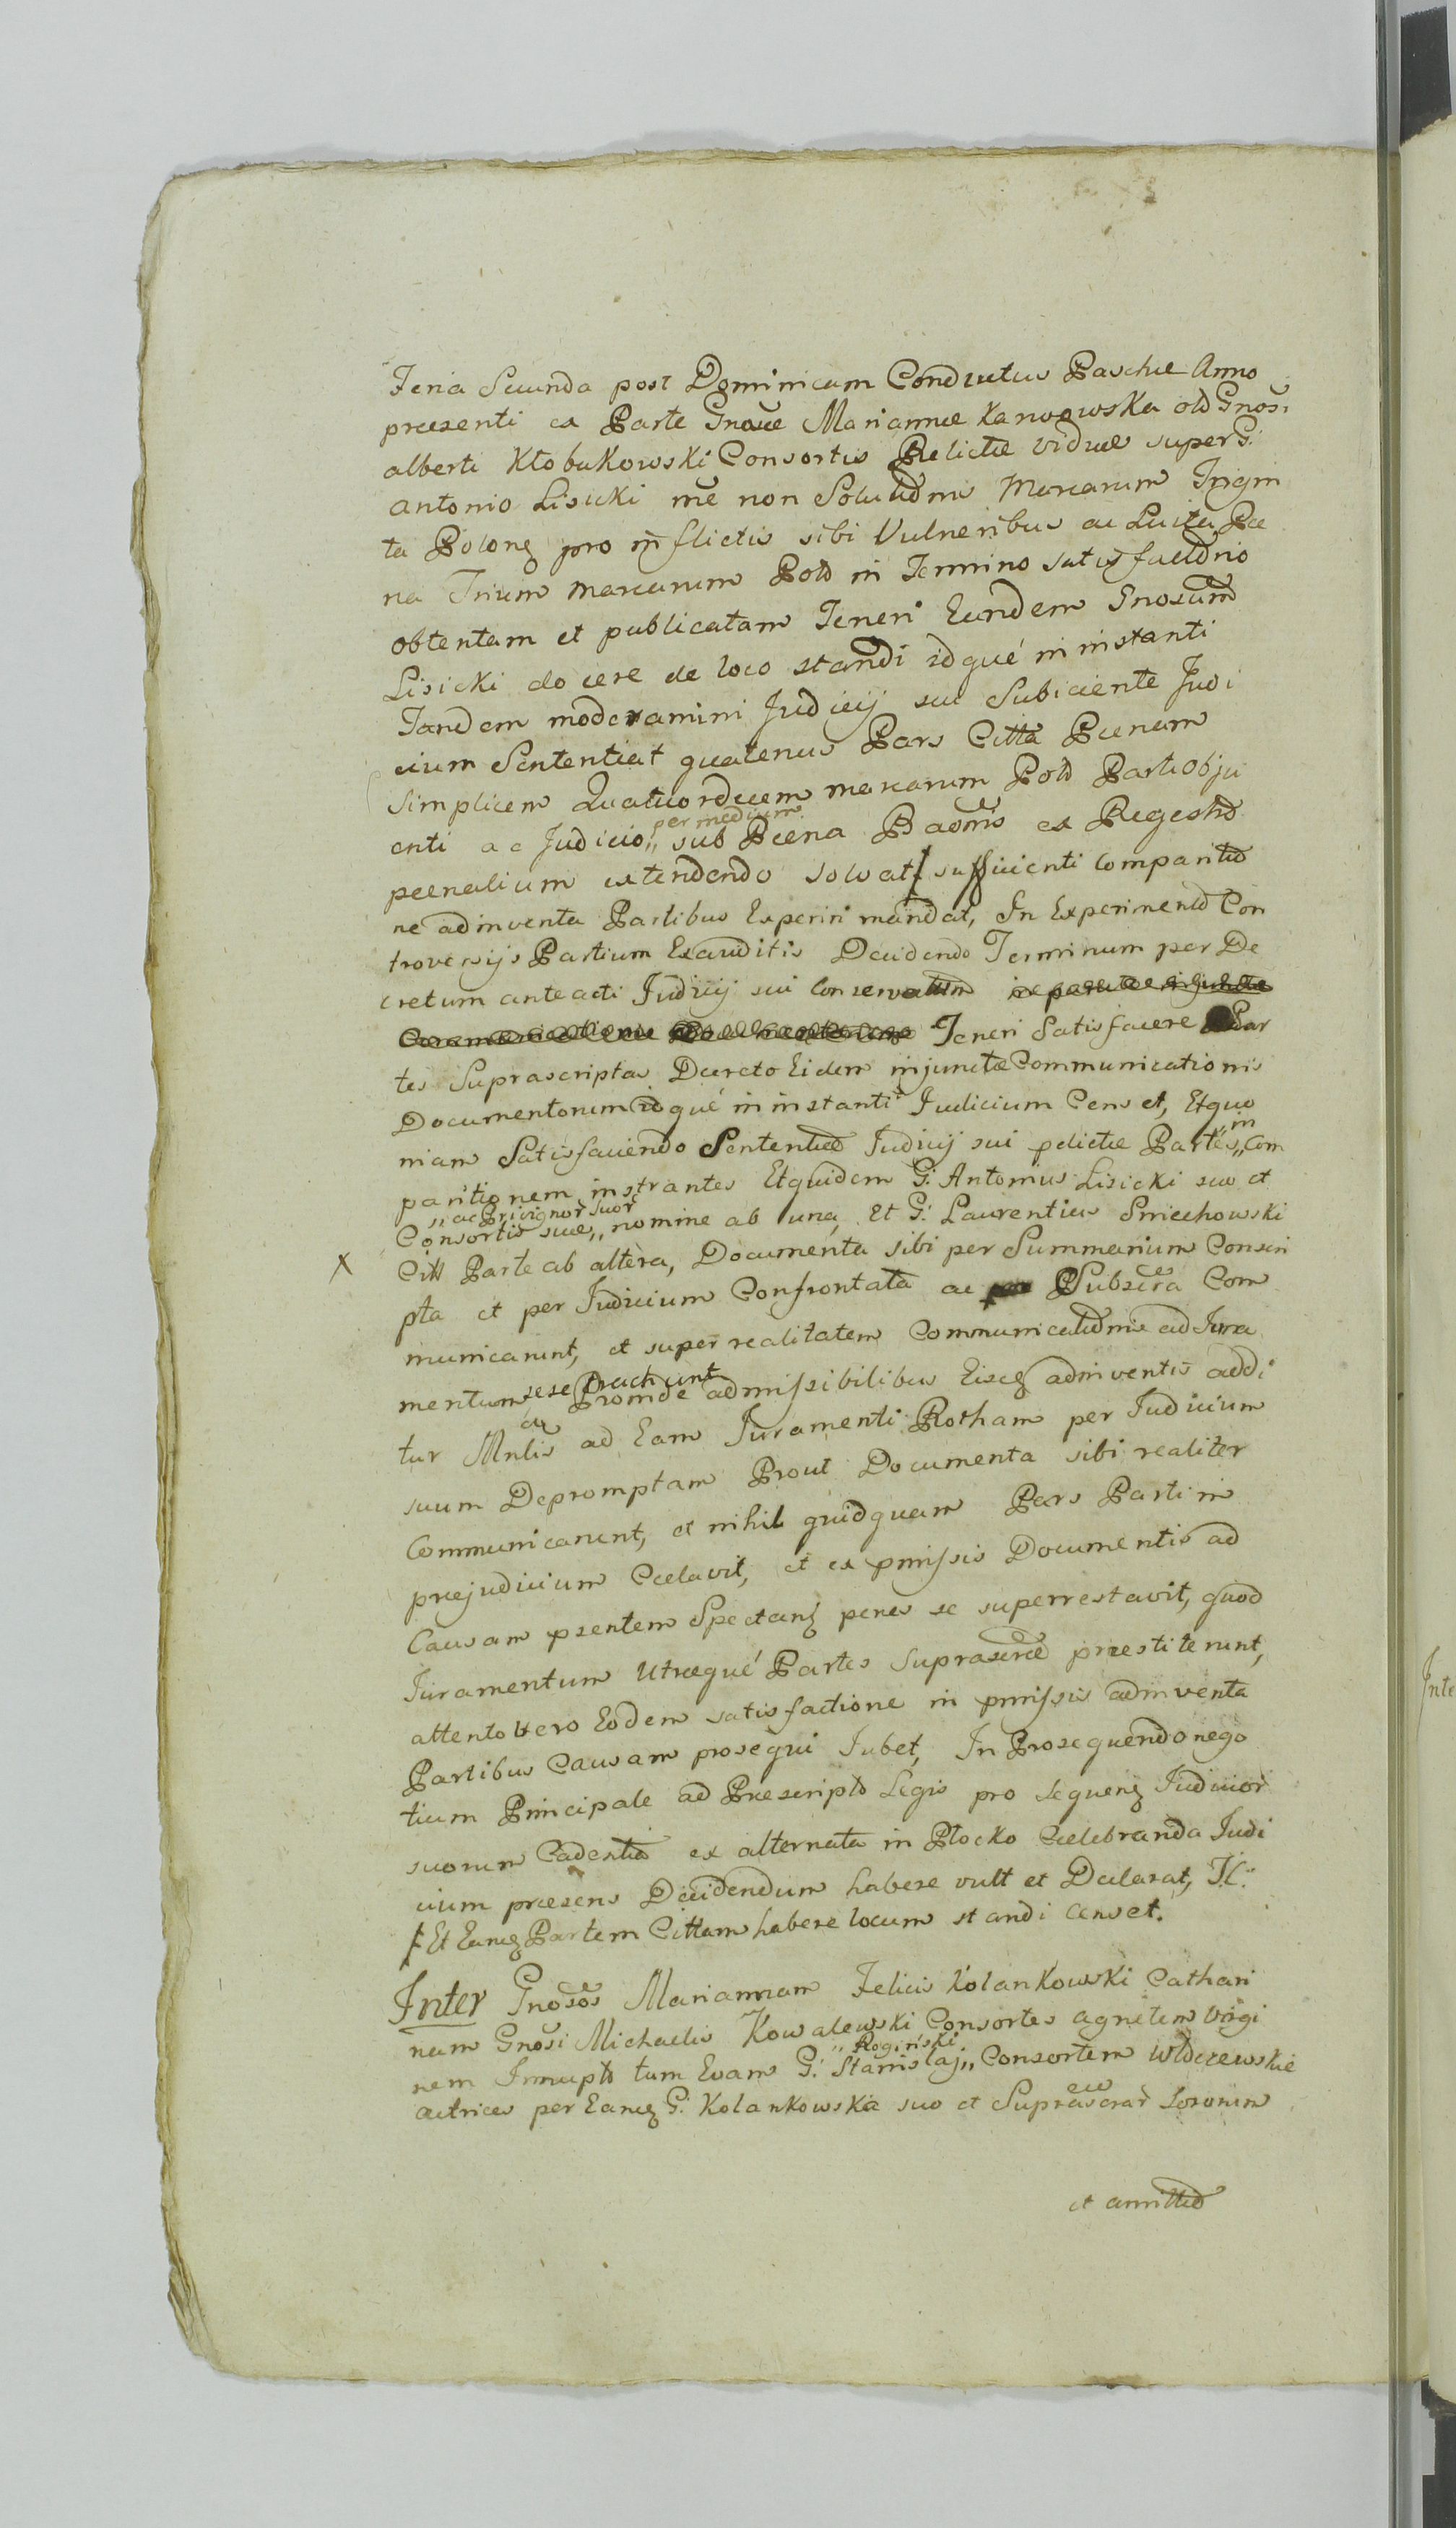 Feria Secunda post Dominicam Conductus Paschæ Anno
præsenti ex Parte Gnosæ Mariannæ Karwowska old Gnosi
alberti Kłobukowski Consortis Relictæ viduæ super G:
Antonio Lisicki rne non Solutidnis Marcarum Trigin
ta Polong pro inflictis sibi Vulneribus ac Luita Pæ
na Trium marcarum Pold in Termino satisfactidnio
obtentam et publicatam Teneri Eundem Gnosum
Lisicki docere de loco standi idqué in instanti
Tandem moderamini Judicij sui Subiciente Judi
cium Sententiat quatenus Pars Citta Pænam
simplicem Quatuordecem marcarum Pold Parti Obju
enti ac Judicio,, per medium sub Pæna Baonis ex Regestro
pænalium extendendo solvat ꝉ sufficienti Comparitio
ne adinventa Partibus Experiri mandat, In Experimento Con
troversijs Partium Exauditis Decidendo Terminum per De
cretum anteacti Judicij sui Conservatum
Teneri Satisfacere Par
tes Suprascriptas Decreto Eidem injunctæ Communicationis
Documentorum idqué in instanti Judicium Censet, Et quo
niam Satisfaciendo Sententiæ Judicij sui pdictæ Partes,, in Com
paritionem instrantes Et quidem G: Antonius Lisicki suo et
Consortis suæ,, ac Privignor suor nomine ab una, Et G: Laurentius Smiechowski
X Citt Parte ab altera, Documenta sibi per Summarium Conscri
pta et per Judicium Confrontata ac Subscra Com
municarunt, et super realitatem Communicatidnis ad Jura
mentum sese trachunt Proinde admissibilibus Eisq adinventis addi
tur Mnlis ad Eam Juramenti Rotham per Judicium
suum Depromptam Prout Documenta sibi realiter
Communicarunt, et nihil quidquam Pars Parti in
præjudicium Cælavit, et ex pmissis Documentis ad
Causam psentem Spectanq penes se superrestavit, quod
Juramentum Utræqué Partes suprascræ præstiterunt,
attento vero Eodem satisfactione in pmissis adinventa
Partibus Causam prosequi Jubet, In Prosequendo nego
tium Principale ad Præscripto Legis pro sequenq Judicior
suorum Cadentia ex alternata in Płocko Cælebranda Judi
cium præsens Decidendum habere vult et Declarat, J.C.
ꝉ Et Eamq Partem Cittam habere locum standi Censet.
Inter Gnosos Mariannam Felicis Kolankowski Cathari
nam Gnosi Michaelis Kowalewski Consortes agnetem Virgi
nem Innupto tum Evam G: Stanislaj,, Rogiński Consortem
actrices per Eamq G: Kolankowska suo et Suprascrar Sororum
et amittid
Inte